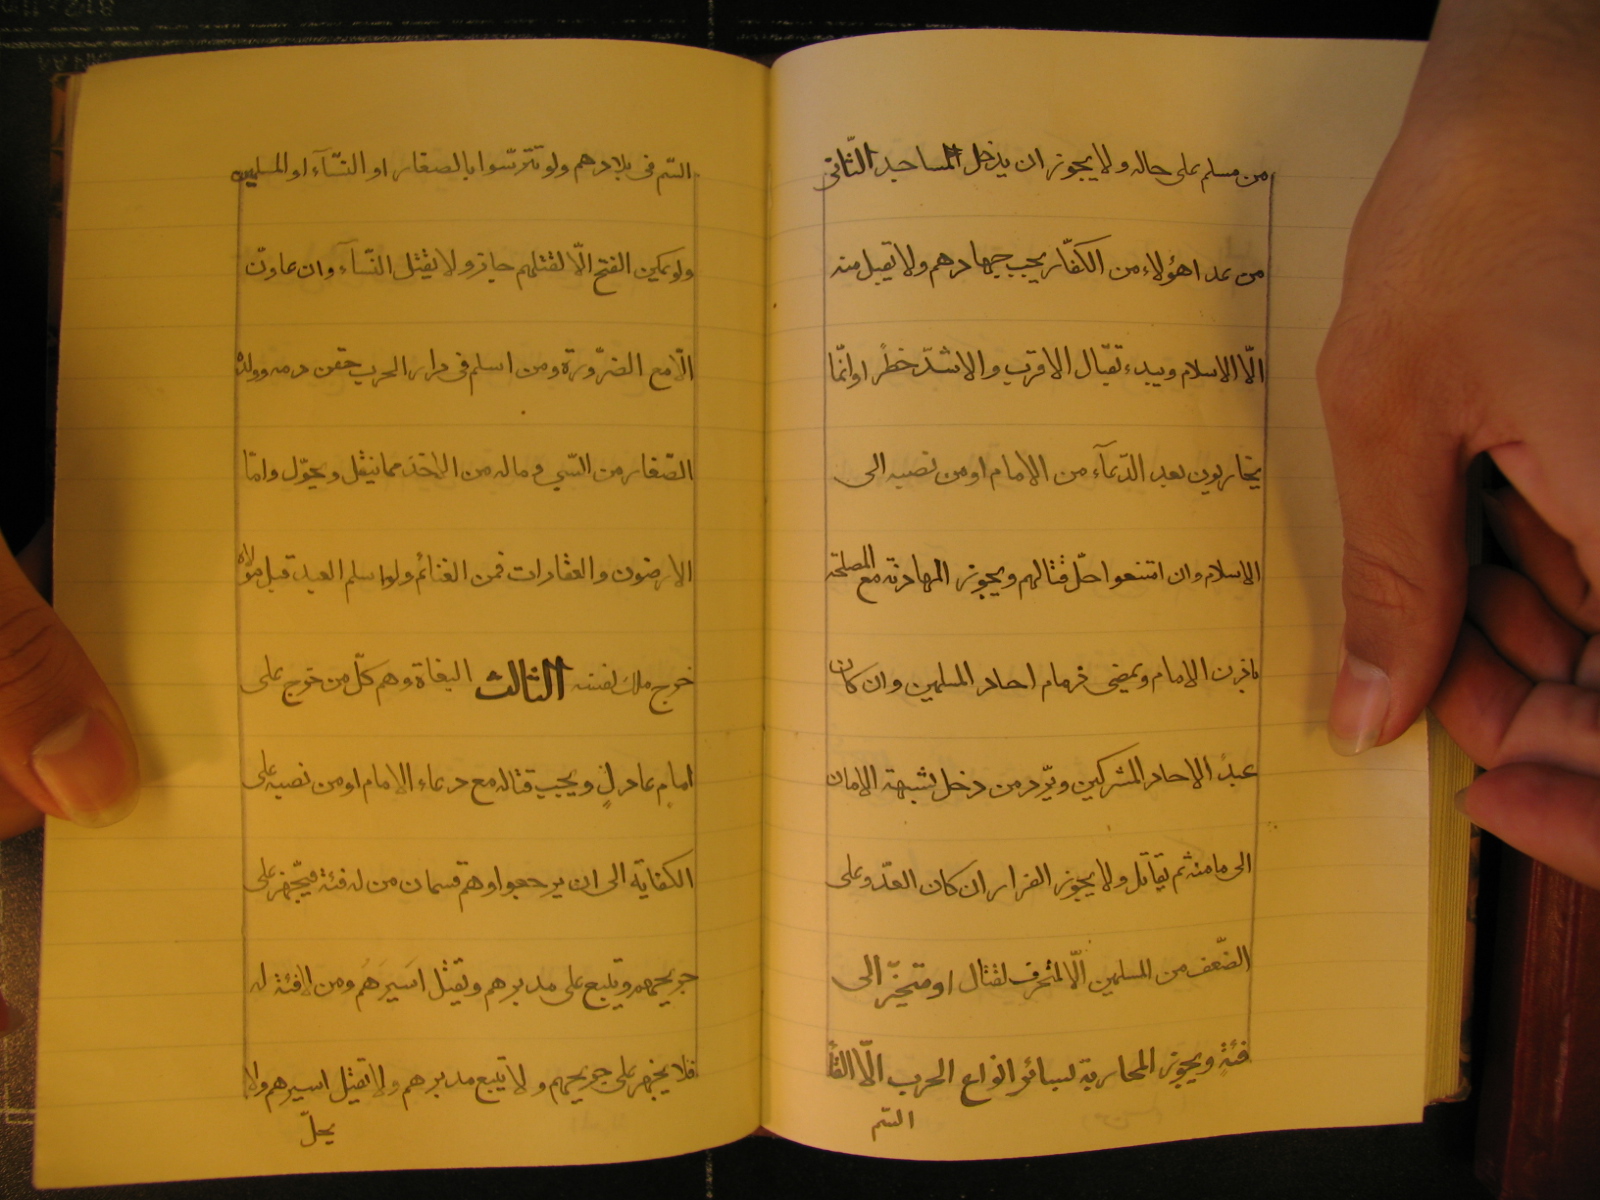 من مسلم على حاله ولا يجوز ان يدخل المساجد الثّانى
من عدا هؤلاء من الكفّار يجب جهادهم ولا تقبل منه
الّا الاسلام ويبدء بقتال الاقرب والاشدّ خطرا وانّما
يحاربون بعد الدّعآء من الامام او من نصبه الى
الاسلام وان امتنعوا حلّ قتالهم ويجوز المهادنة مع المصلحة
باذن الامام ويمضى ذمام احاد المسلمين وان كان
عبدً الاحاد المشركين ويردّ من دخل بشبهة الامان
الى مامنه ثم يقاتل ولا يجوز الفرار ان كان العدّو على
الضّعف من المسلمين الّا لمتحرف لقتال او متحيّز الى
فئةٍ ويجوز المحاربة لسائر انواع الحرب الّا القأ
السّم
السّم فى بلادهم ولو تترّسوا بالصغار او النّسآء او المسلمين
ولو يمكن الفتح الّا لقتلهم جاز ولا يقتل النّسآء وان عاونّ
الّا مع الضّرورة ومن اسلم فى دار الحرب حقن دمه وولده
الصّغار من السّبي وماله من الاخذ مما ينقل ويحوّل وامّا
الارضون والعقارات فمن الغنائم ولو اسلم العبد قبل مولاه
خرج ملك نفسه الثالث البغاة وهم كلّ من خرج على
امامٍ عادلٍ ويجب قتاله مع دعاء الامام او من نصبه على
الكفاية الى ان يرجعوا وهم قسمان من له فئة فيجّهز على
جريحهم ويتبع على مدبرهم ويقتل اسيرهم ومن لا فئة له
فلا يجهز على جريحهم ولا يتبع مدبرهم ولا تقتل اسيرهم ولا
يحلّ